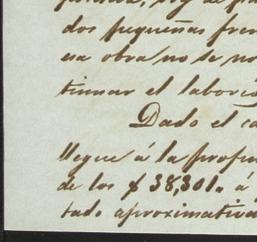 dos pequeñas fren
esa obra no se no
tinuar el laborio
Dado el ca
llegue á la profun
de los $ 38,301. á
tado aproximativa